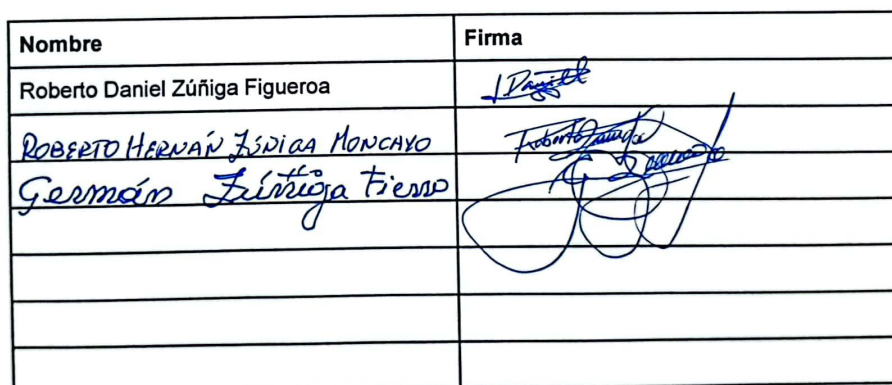 Nombre Firma
Roberto Daniel Zúñiga Figueroa Daniel
ROBERTO HERNÁN ZÚÑIGA MONCAYO Roberto
Germán Zúñiga Fierro